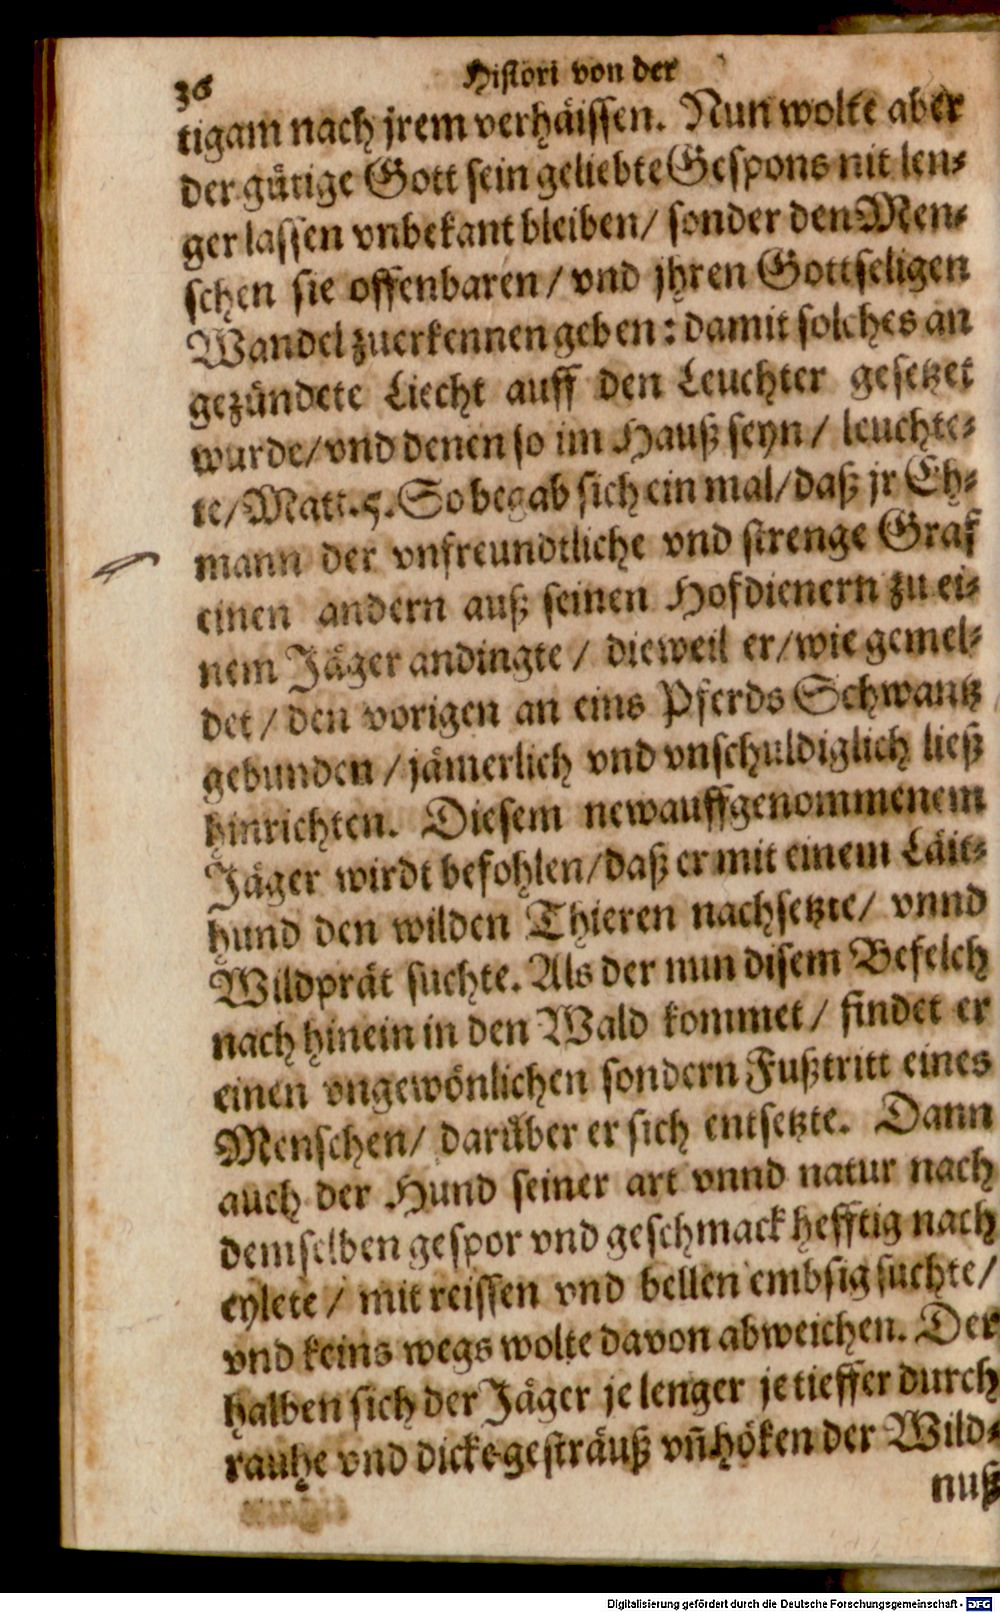 36
Histori von der
tigam nach jrem verhäissen. Nun wolte aber
der gütige Gott sein geliebte Gespons nit len⸗
ger lassen vnbekant bleiben / sonder den Men⸗
schen sie offenbaren / vnd jhren Gottseligen
Wandel zuerkennen geben : damit solches an
gezündete Liecht auff den Leuchter gesetzet
wurde / vnd denen so im Hauß seyn / leuchte⸗
te / Matt. 5. So begab sich ein mal / daß jr Eh⸗
mann der vnfreundtliche vnd strenge Graf
einen andern auß seinen Hofdienern zu ei⸗
nem Jäger andingte / dieweil er / wie gemel⸗
det / den vorigen an eins Pferds Schwantz
gebunden / jämerlich vnd vnschuldiglich ließ
hinrichten. Diesem newauffgenommenem
Jäger wirdt befohlen / daß er mit einem Läit⸗
hund den wilden Thieren nachsetzte / vnnd
Wildprät suchte. Als der nun disem Befelch
nach hinein in den Wald kommet / findet er
einen vngewönlichen sondern Fußtritt eines
Menschen / darüber er sich entsetzte. Dann
auch der Hund seiner art vnnd natur nach
demselben gespor vnd geschmack hefftig nach
eylete / mit reissen vnd bellen embsig suchte /
vnd keins wegs wolte davon abweichen. Der
halben sich der Jäger je lenger je tieffer durch
rauhe vnd dicke gesträuß vñ höken der Wild⸗
nuß
Digitalisierung gefördert durch die Deutsche Forschungsgemeinschaft - DFG